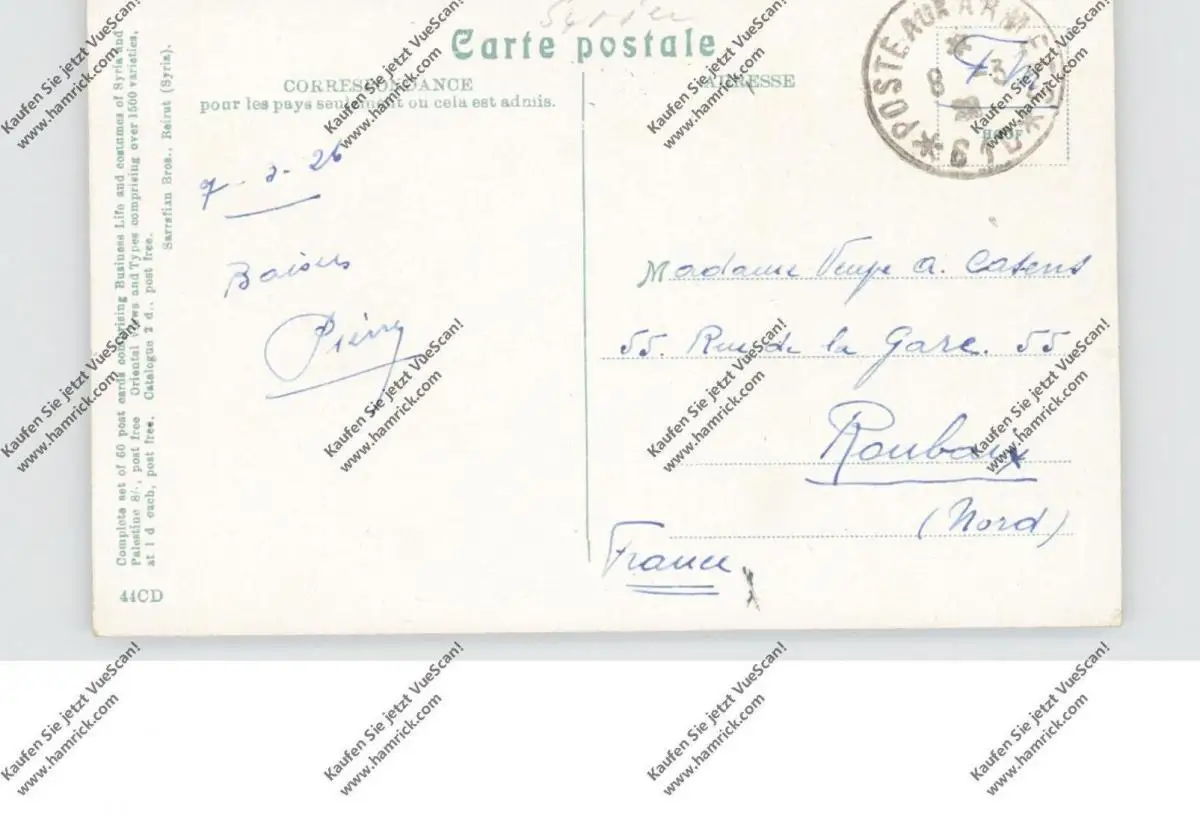 Syrien
Carte postale
CORRESPONDANCE
pour les pays seulement ou cela est admis.
ADRESSE
POSTE AUX ARMEES
8 -3
FM
610
7-3-26
Baisers
Pierre
Madame Veuve A. Casens
55. Rue de la Gare. 55
Roubaix
(Nord)
France
Complete set of 60 post cards comprising Business Life and costumes of Syria and
Palestine 8/-, post free Oriental Views and Types comprising over 1500 varieties,
at 1 d each, post free. Catalogue 2 d., post free.
Sarrafian Bros., Beirut (Syria).
44CD
Kaufen Sie jetzt VueScan!
www.hamrick.com
Kaufen Sie jetzt VueScan!
www.hamrick.com
Kaufen Sie jetzt VueScan!
www.hamrick.com
Kaufen Sie jetzt VueScan!
www.hamrick.com
Kaufen Sie jetzt VueScan!
www.hamrick.com
Kaufen Sie jetzt VueScan!
www.hamrick.com
Kaufen Sie jetzt VueScan!
www.hamrick.com
Kaufen Sie jetzt VueScan!
www.hamrick.com
Kaufen Sie jetzt VueScan!
www.hamrick.com
Kaufen Sie jetzt VueScan!
www.hamrick.com
Kaufen Sie jetzt VueScan!
www.hamrick.com
Kaufen Sie jetzt VueScan!
www.hamrick.com